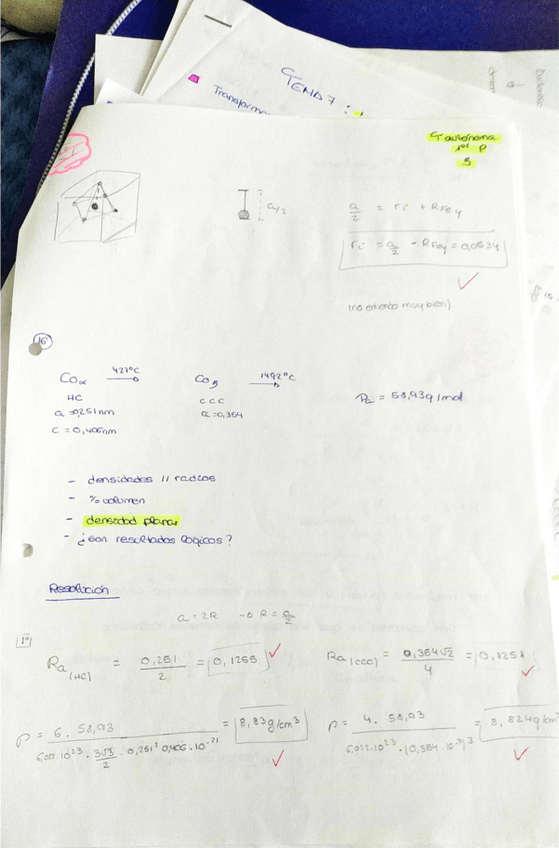 TEMA 7:
Transforma
autónoma
1er P
a/2
a/2 = ri + RFeγ
ri = a/2 - RFeγ = 0,0534
(no entiendo muy bien)
16
Coα 427ºC → Coβ 1492ºC → Pa = 58,93 g/mol
HC CCC
a = 0,251 nm a = 0,354
c = 0,406 nm
- densidades // radios
- % volumen
- densidad planar
- ¿son resultados lógicos?
Resolución
a = 2R → R = a/2
1º
Ra (HC) = 0,251/2 = 0,1255 Ra (CCC) = 0,354√2/4 = 0,1251
ρ = 6 . 58,93 / 6,022·10^23 · 3√3/2 · 0,251² 0,406 · 10^-21 = 8,83 g/cm³ ρ = 4 . 58,93 / 6,022·10^23 · (0,354·10^-7)^3 = 8,824 g/cm³